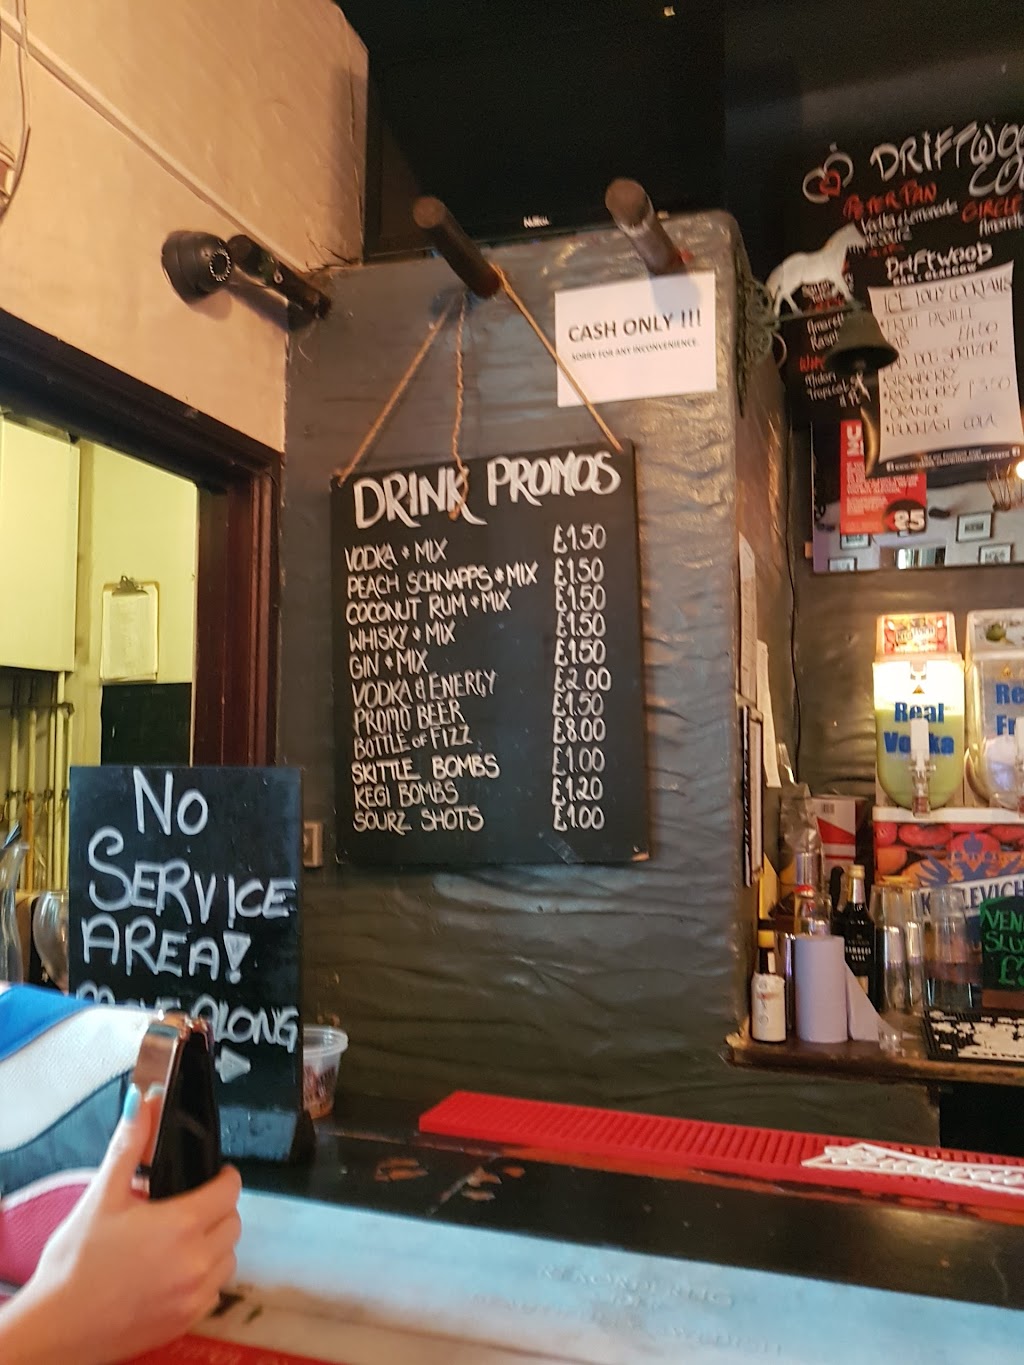 CASH ONLY !!!
SORRY FOR ANY INCONVENIENCE.
DRINK PROMOS
VODKA & MIX £1.50
PEACH SCHNAPPS & MIX £1.50
COCONUT RUM & MIX £1.50
WHISKY & MIX £1.50
GIN & MIX £1.50
VODKA & ENERGY £2.00
PROMO BEER £1.50
BOTTLE OF FIZZ £8.00
SKITTLE BOMBS £1.00
KEGI BOMBS £1.20
SOURZ SHOTS £1.00
NO
SERVICE
AREA!
MOVE ALONG
DRIFTWOO
CO
PETER PAN
Vodka & Lemonade
CIRCLE
DRIFTWOOD
BAR GLASGOW
ICE LOLLY COCKTAILS
FRUIT PASTILLE
£4.00
DOG SPRITZER
STRAWBERRY
•RASPBERRY £3.50
•ORANGE
•BUCKFAST COLA
£5
Real
Vodka
Re
Fr
VEN
SLU
£